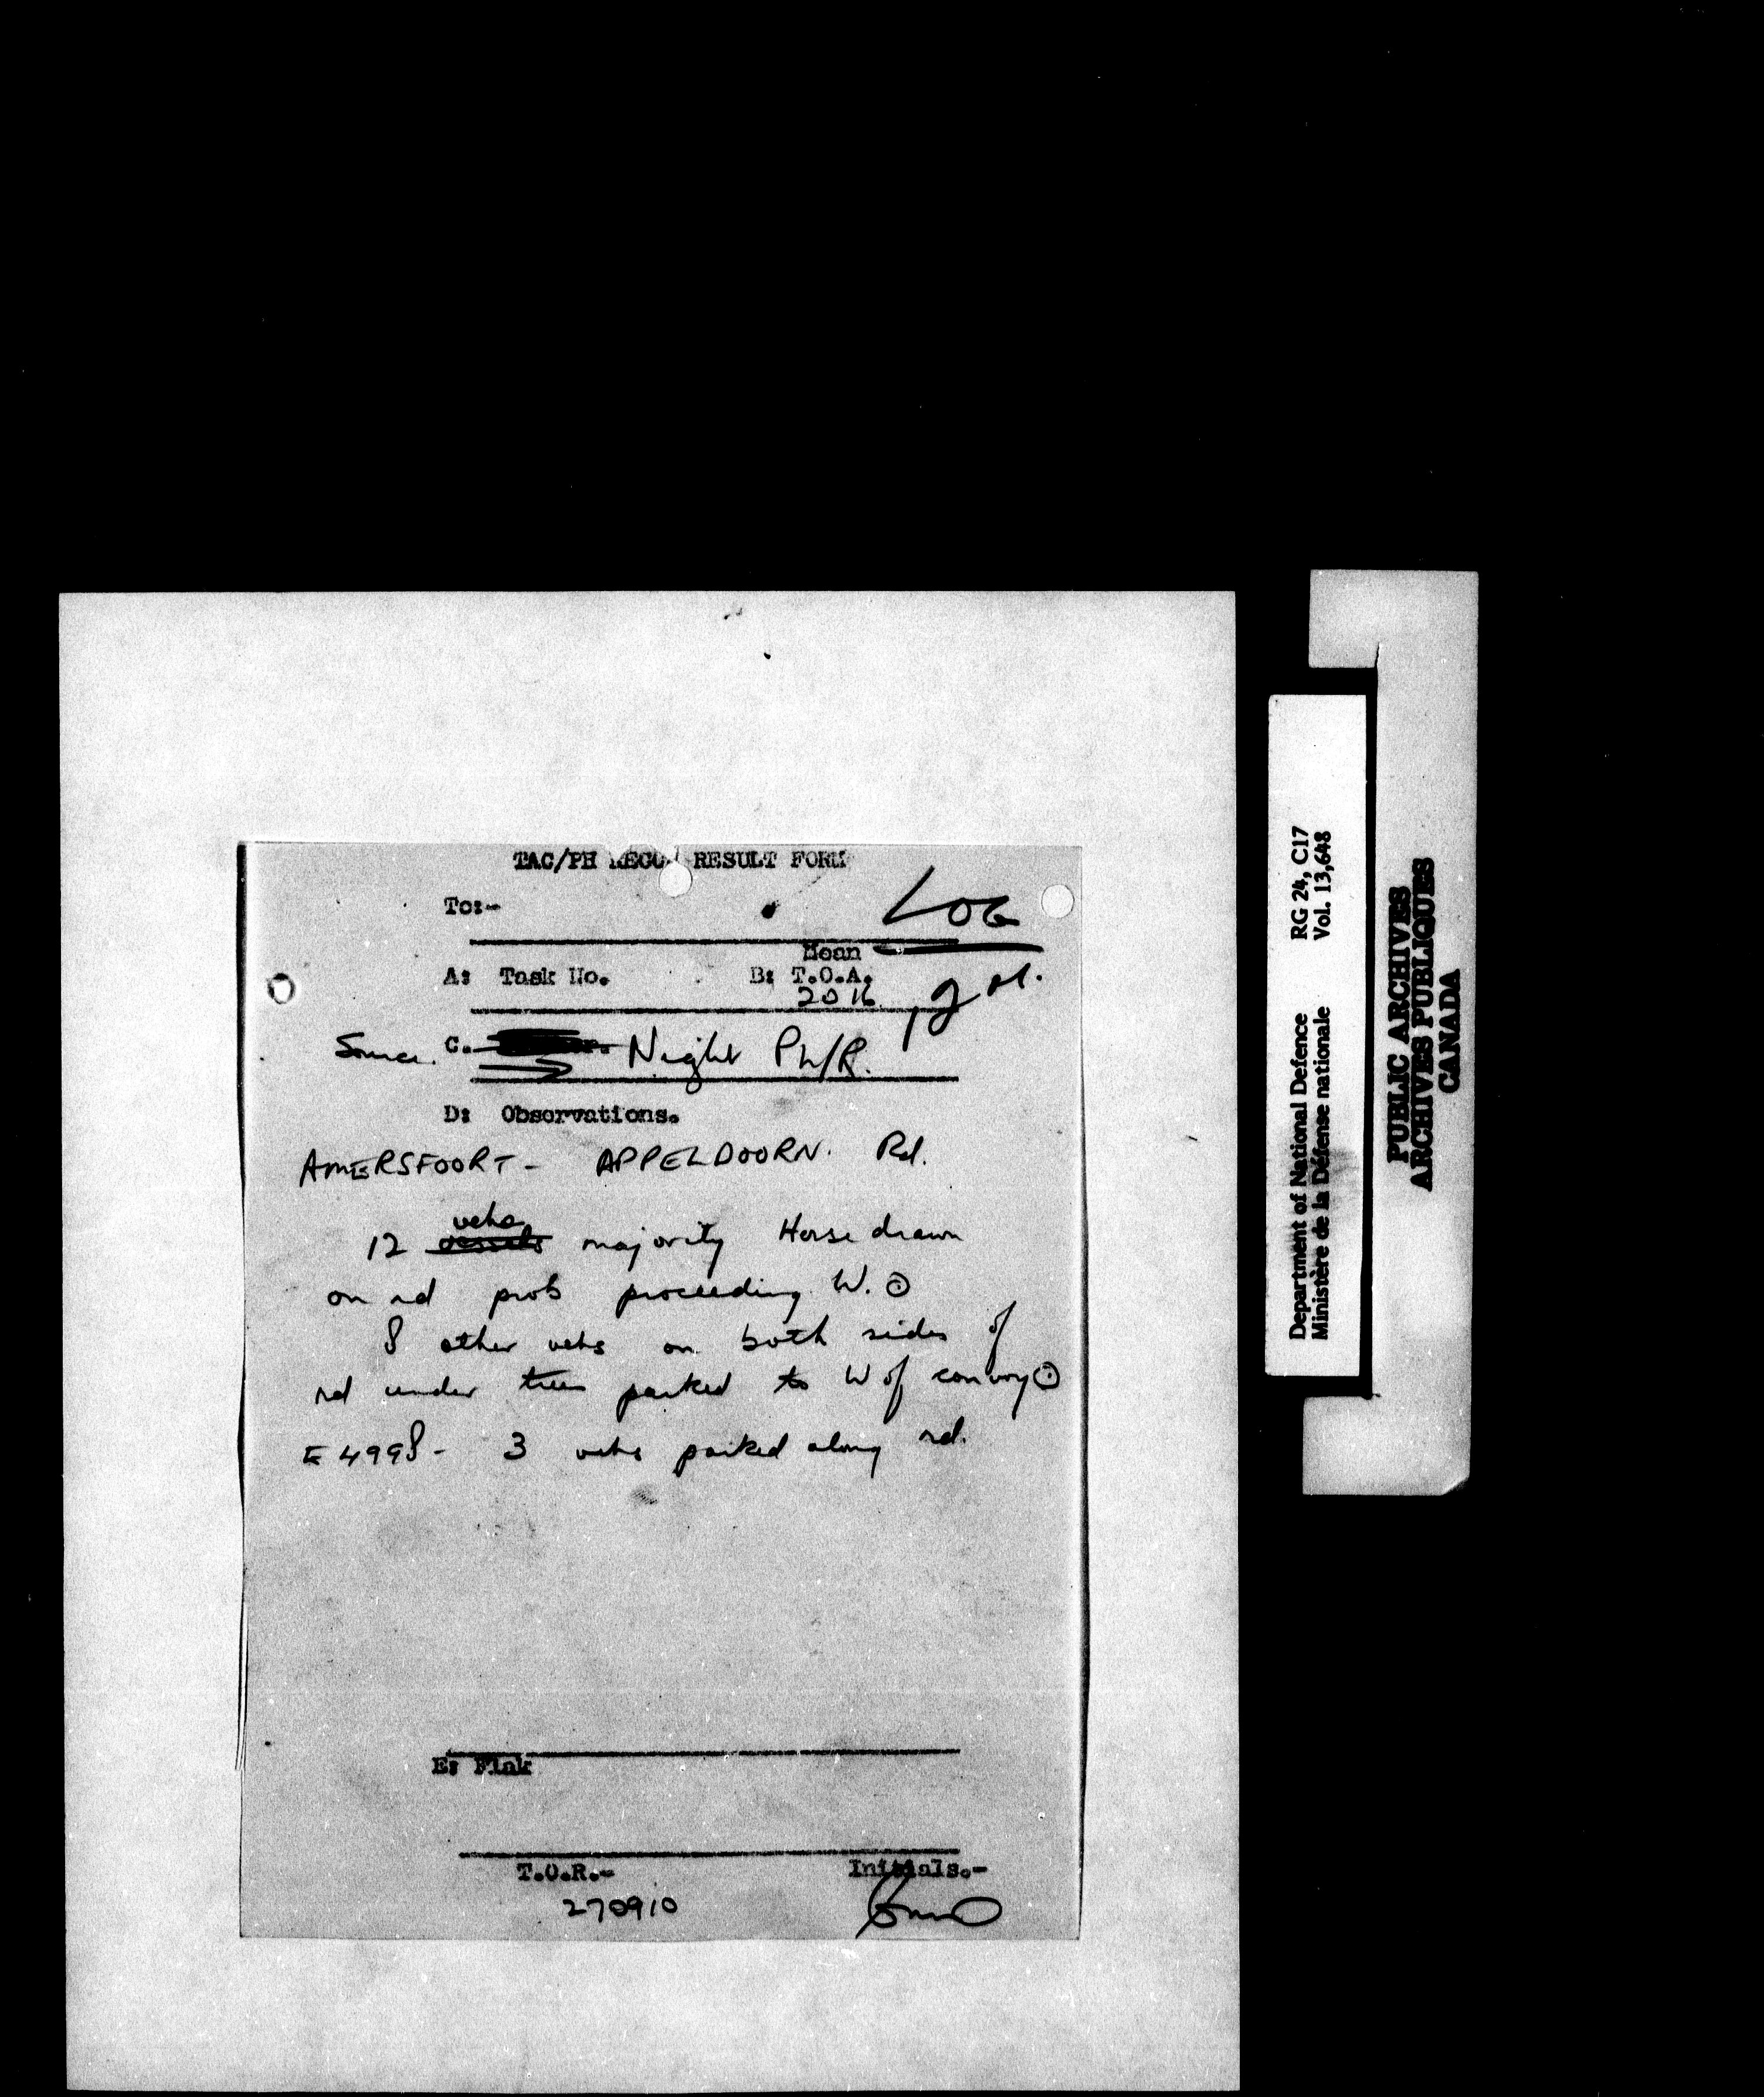 TAC/PH RECON RESULT FORM
To:-
LOG
Mean
A: Task No. B: T.O.A.
2016
Source. C. Night Ph/R.
D: Observations.
AMERSFOORT - APPELDOORN. Rd.
vehs
12 vessels majority Horse drawn
on rd prob proceeding W. ⊙
8 other vehs on both sides of
rd under trees parked to W of convoy ⊙
E 4998 - 3 vehs parked along rd.
E: Flak
T.O.R.- Initials.-
270910
Department of National Defence RG 24, C17
Ministère de la Défense nationale Vol. 13,648
PUBLIC ARCHIVES
ARCHIVES PUBLIQUES
CANADA